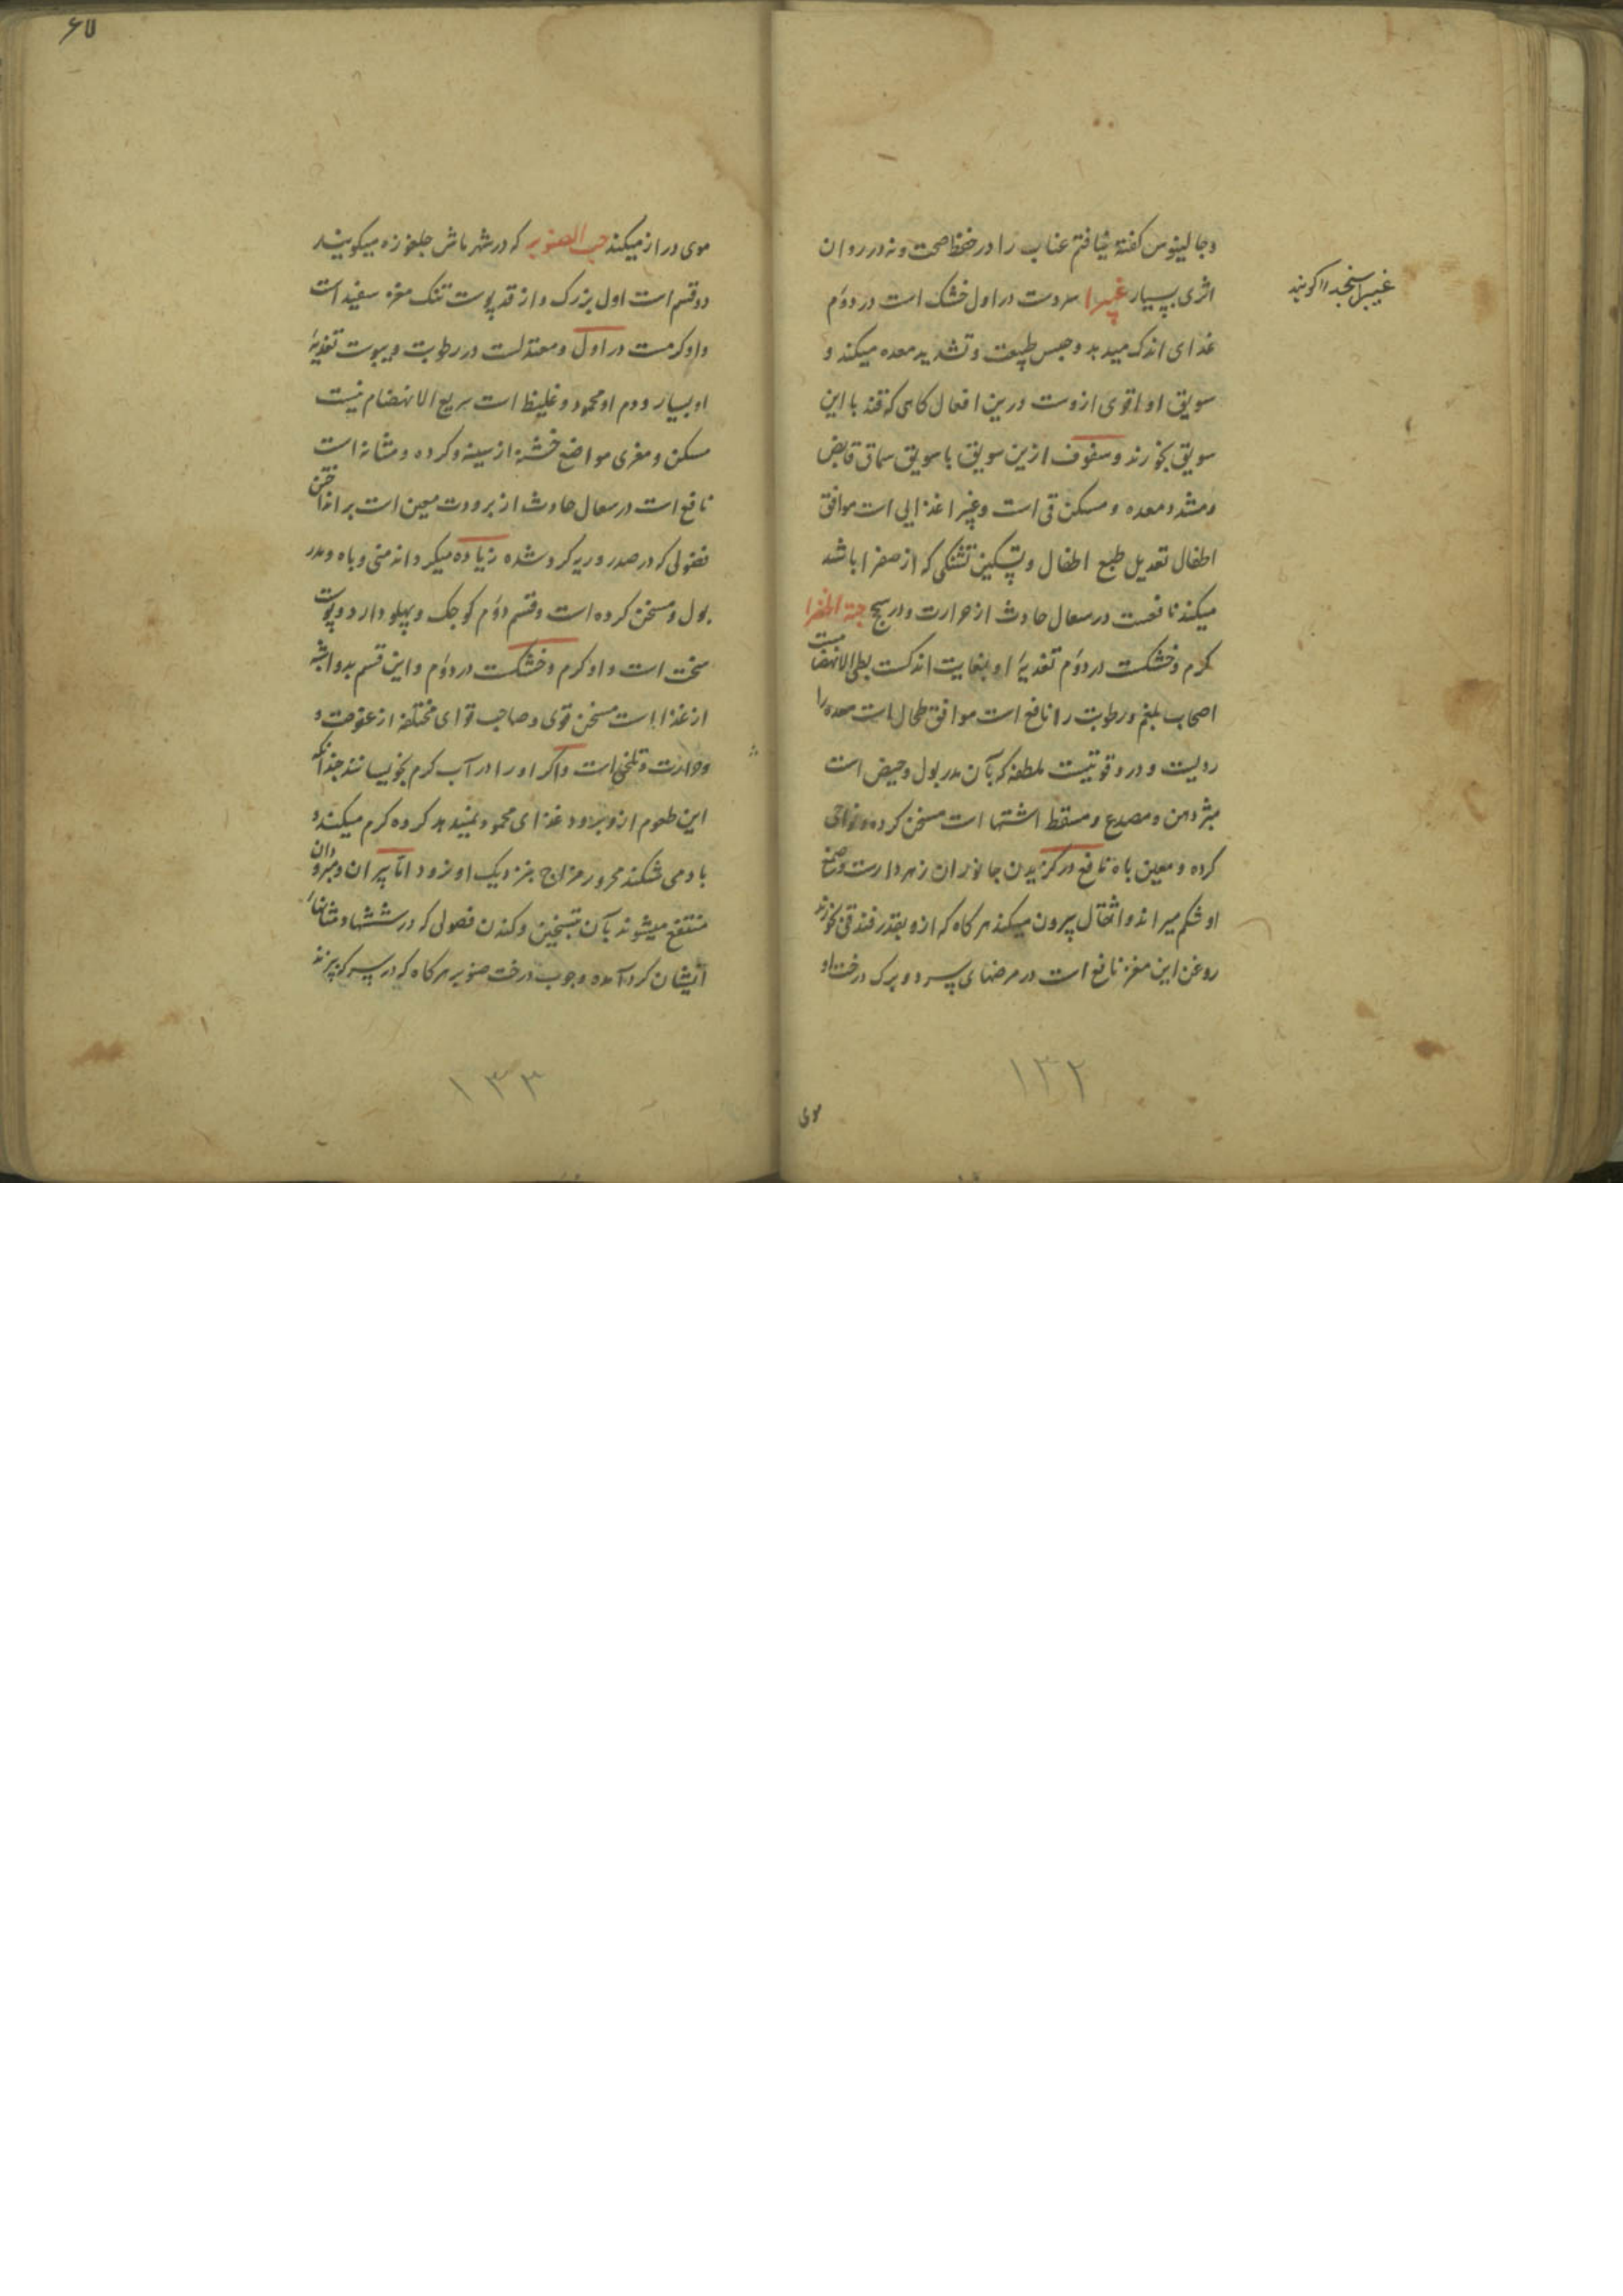 وجالینوس گفته نیافتم عناب را در حفظ صحت و نه در روان
اثری بسیار غبیرا سردست در اول خشک است در دوم
غذای اندک میدهد و حبس طبیعت و تشدید معده میکند و
سویق او اقوی ازوست درین افعال کاهی که قند با این
سویق بخورند و سفوف ازین سویق با سویق سماق قابض
و مشدد معده و مسکن قی است و غبیرا غذایی است موافق
اطفال تعدیل طبع اطفال و تسکین تشنکی که از صفرا باشد
میکند نافعست در سعال حادث از حرارت و در سحج حبة الخضرا
کرم و خشکست در دوم تغذیهٔ او بغایت اندکست بطی الانهضا میست
اصحاب بلغم و رطوبت را نافع است موافق طحال است معده را
ردیست و درو قوتیست ملطفه که بآن مدر بول و حیض است
مبثر دهن و مصدع و مسقط اشتها است مسخن کرده و
کرده و معین باه نافع در کزیدن جانوران زهردارست و صمغ
او شکم میراند و اثقال بیرون میکند هرکاه که ازو بقدر فندقی بخورند
روغن این مغز نافع است در مرضهای سرد و برک درخت او
غبیرا سنجد را کویند
۱۳۲
موی
۶۷
موی دراز میکند حب الصنوبر که در شهر ماش جلغوزه میکویند
دو قسم است اول بزرک دراز قد پوست تنک مغز سفید است
و او کرمست در اول و معتدلست در رطوبت و یبوست تغذیهٔ
او بسیار و دم او محمود و غلیظ است سریع الانهضام نیست
مسکن و مغری مواضع خشنه از سینه و کرده و مثانه است
نافع است در سعال حادث از برودت معین است بر انداختن
فضولی که در صدر و ریه کرد شده زیاده میکرداند منی و باه و مدر
بول و مسخن کرده است و قسم دوم کوچک و پهلودار و پوست
سخت است و او کرم و خشکست در دوم و این قسم بدوا اشبه
از غذا است مسخن قوی و صاحب قوای مختلفه از عفوصت و
و حرارت و تلخی است و اکر او را در آب کرم بخیسانند چندانکه
این طعوم ازو برود غذای محمود نمیدهد کرده کرم میکند و
باد می شکند محرور مزاج بنزدیک او نرود اما پیران و مبرودان
منتفع میشوند بآن بتسخین و کندن فضولی که در ششها و مثانهاء
ایشان کرد آمده و چوب درخت صنوبر هرکاه که در سرکه پزند
۱۳۳